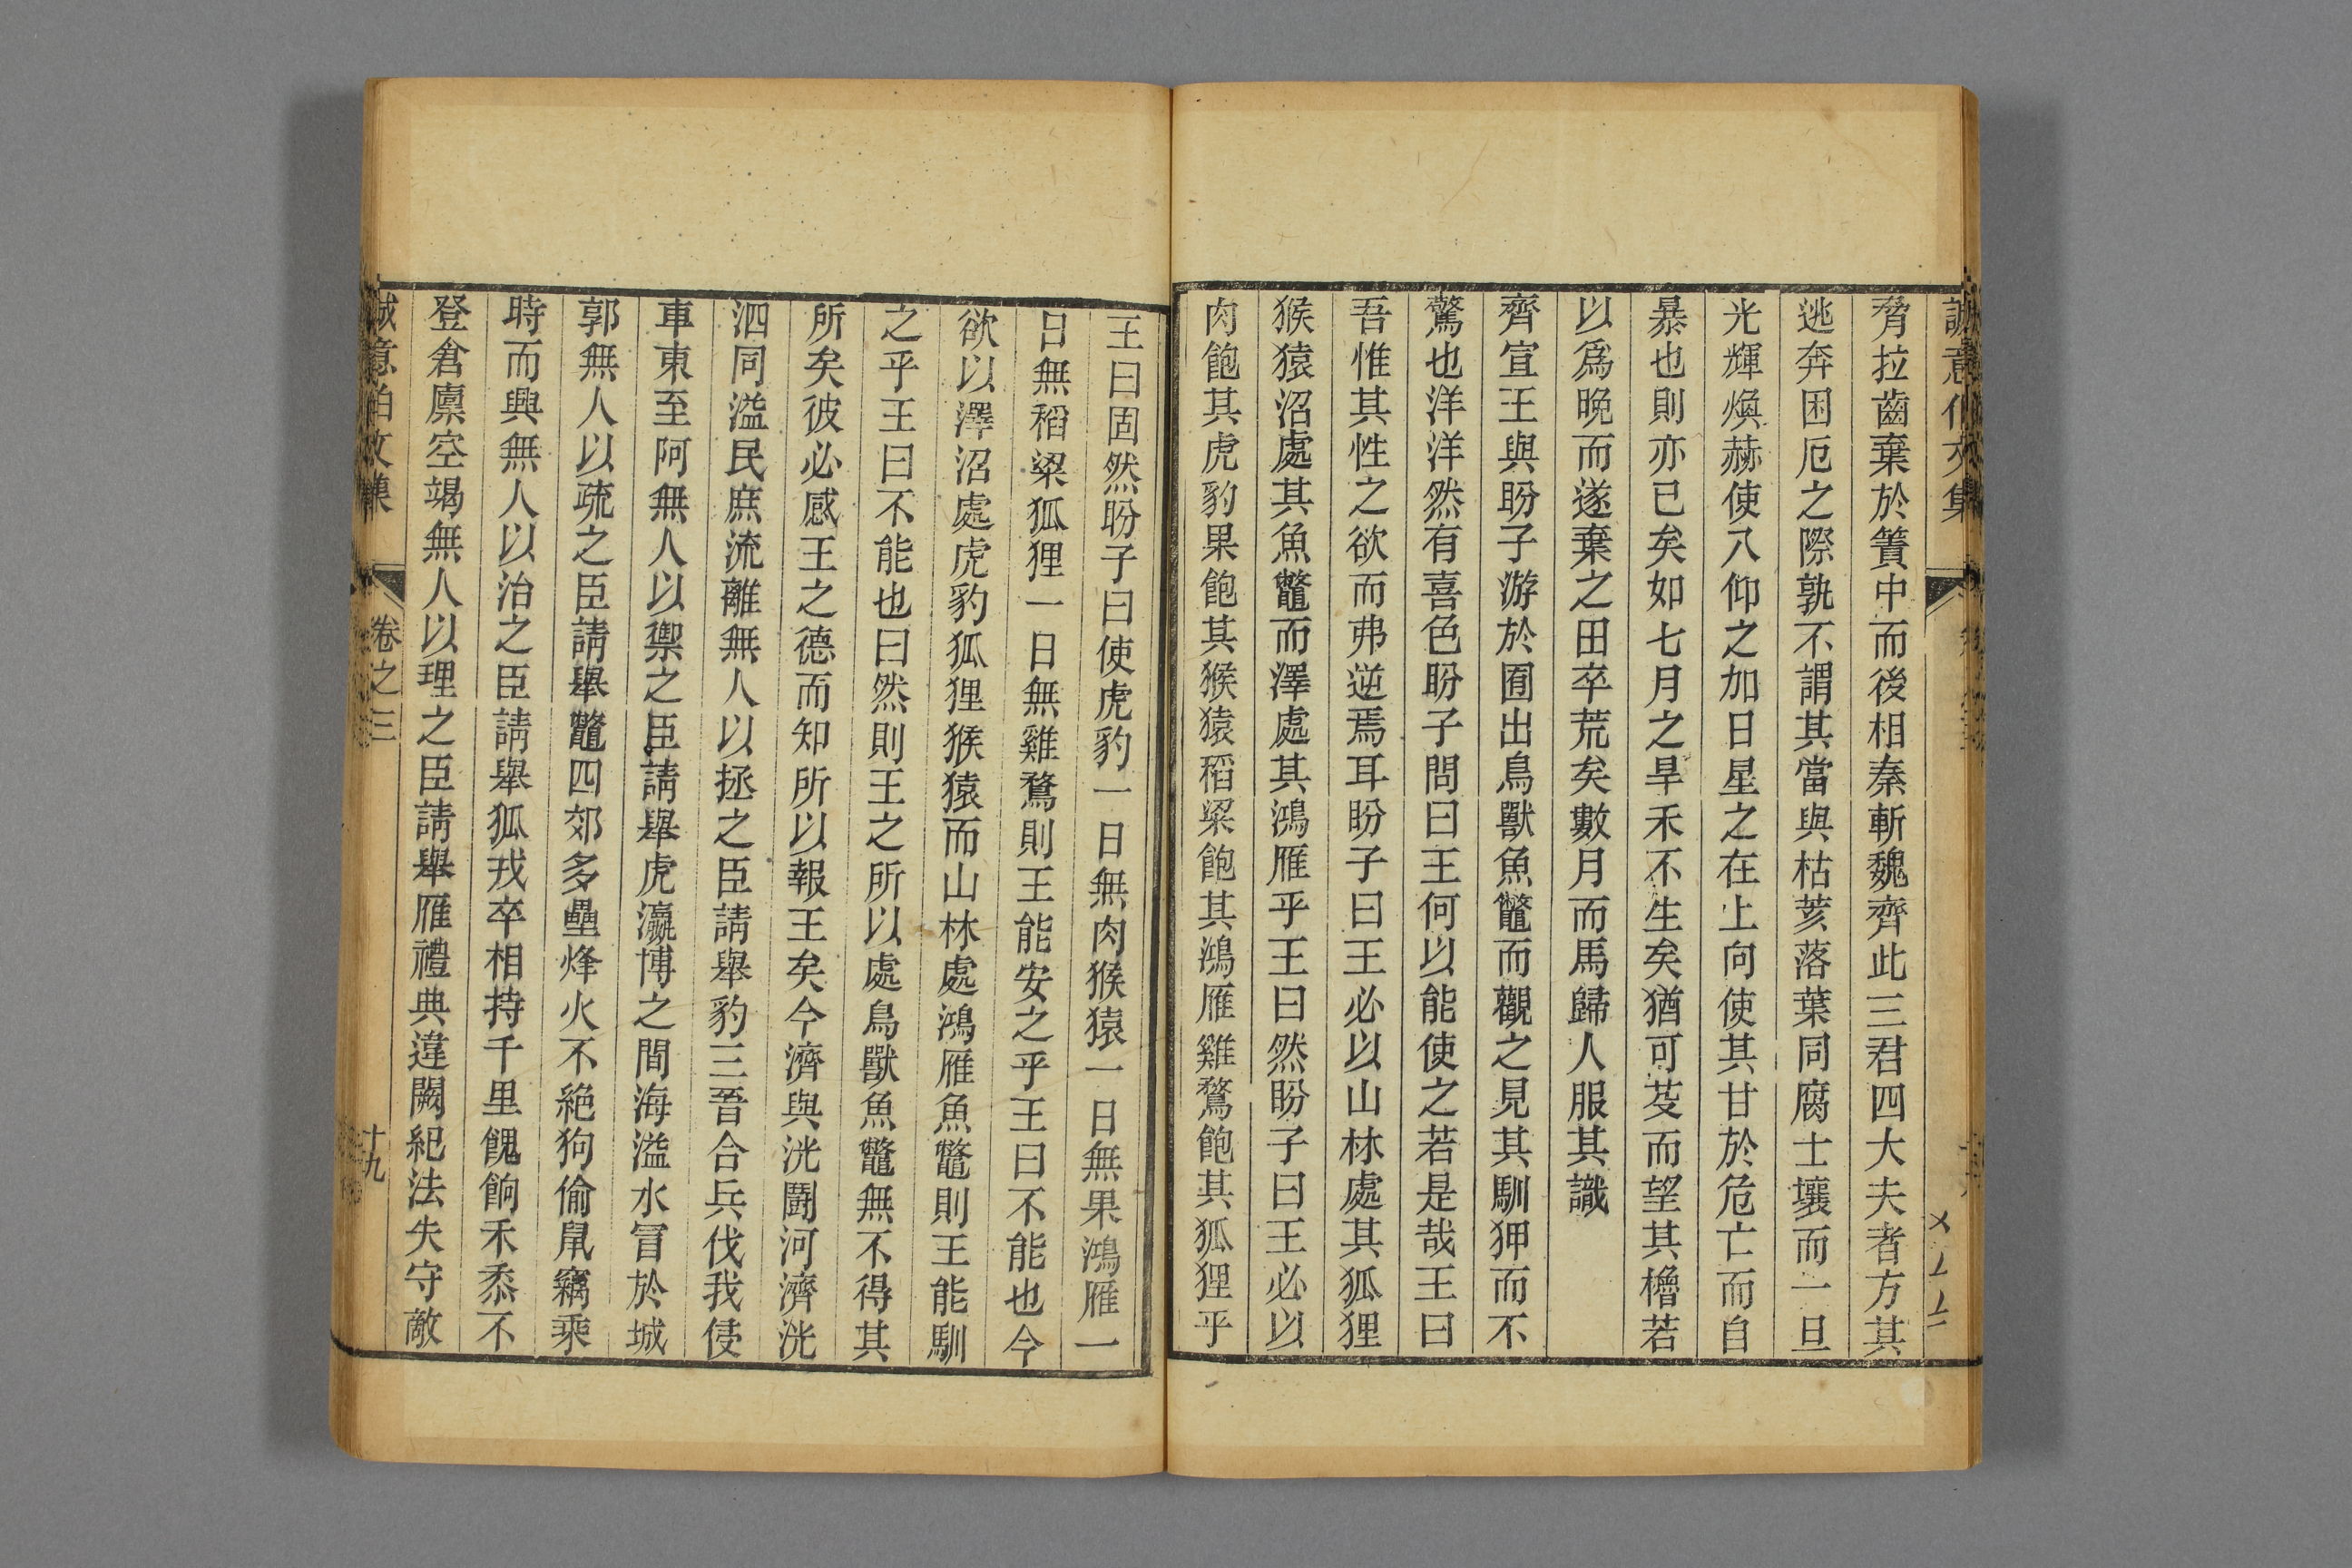 誠意伯文集
脅拉齒棄於簀中而後相秦斬魏齊此三君四大夫者方其
逃奔困厄之際孰不謂其當與枯荄落葉同腐土壤而一旦
光輝煥赫使人仰之加日星之在上向使其甘於危亡而自
暴也則亦已矣如七月之旱禾不生矣猶可芟而望其櫓若
以爲晚而遂棄之田卒荒矣數月而馬歸人服其識
齊宣王與盼子游於囿出鳥獸魚鼈而觀之見其馴狎而不
驚也洋洋然有喜色盼子問曰王何以能使之若是哉王曰
吾惟其性之欲而弗逆焉耳盼子曰王必以山林處其狐狸
猴猿沼處其魚鼈而澤處其鴻雁乎王曰然盼子曰王必以
肉飽其虎豹果飽其猴猿稻粱飽其鴻雁雞鶩飽其狐狸乎
王曰固然盼子曰使虎豹一日無肉猴猿一日無果鴻雁一
日無稻粱狐狸一日無雞鶩則王能安之乎王曰不能也今
欲以澤沼處虎豹狐狸猴猿而山林處鴻雁魚鼈則王能馴
之乎王曰不能也曰然則王之所以處鳥獸魚鼈無不得其
所矣彼必感王之德而知所以報王矣今濟與洸鬪河濟洸
泗同溢民庶流離無人以拯之臣請舉豹三晉合兵伐我侵
車東至阿無人以禦之臣請舉虎瀛博之間海溢水冒於城
郭無人以疏之臣請舉鼈四郊多壘烽火不絶狗偷鼠竊乘
時而興無人以治之臣請舉狐戎卒相持千里餽餉禾黍不
登倉廩空竭無人以理之臣請舉雁禮典違闕紀法失守敵
誠意伯文集
卷之三
十九